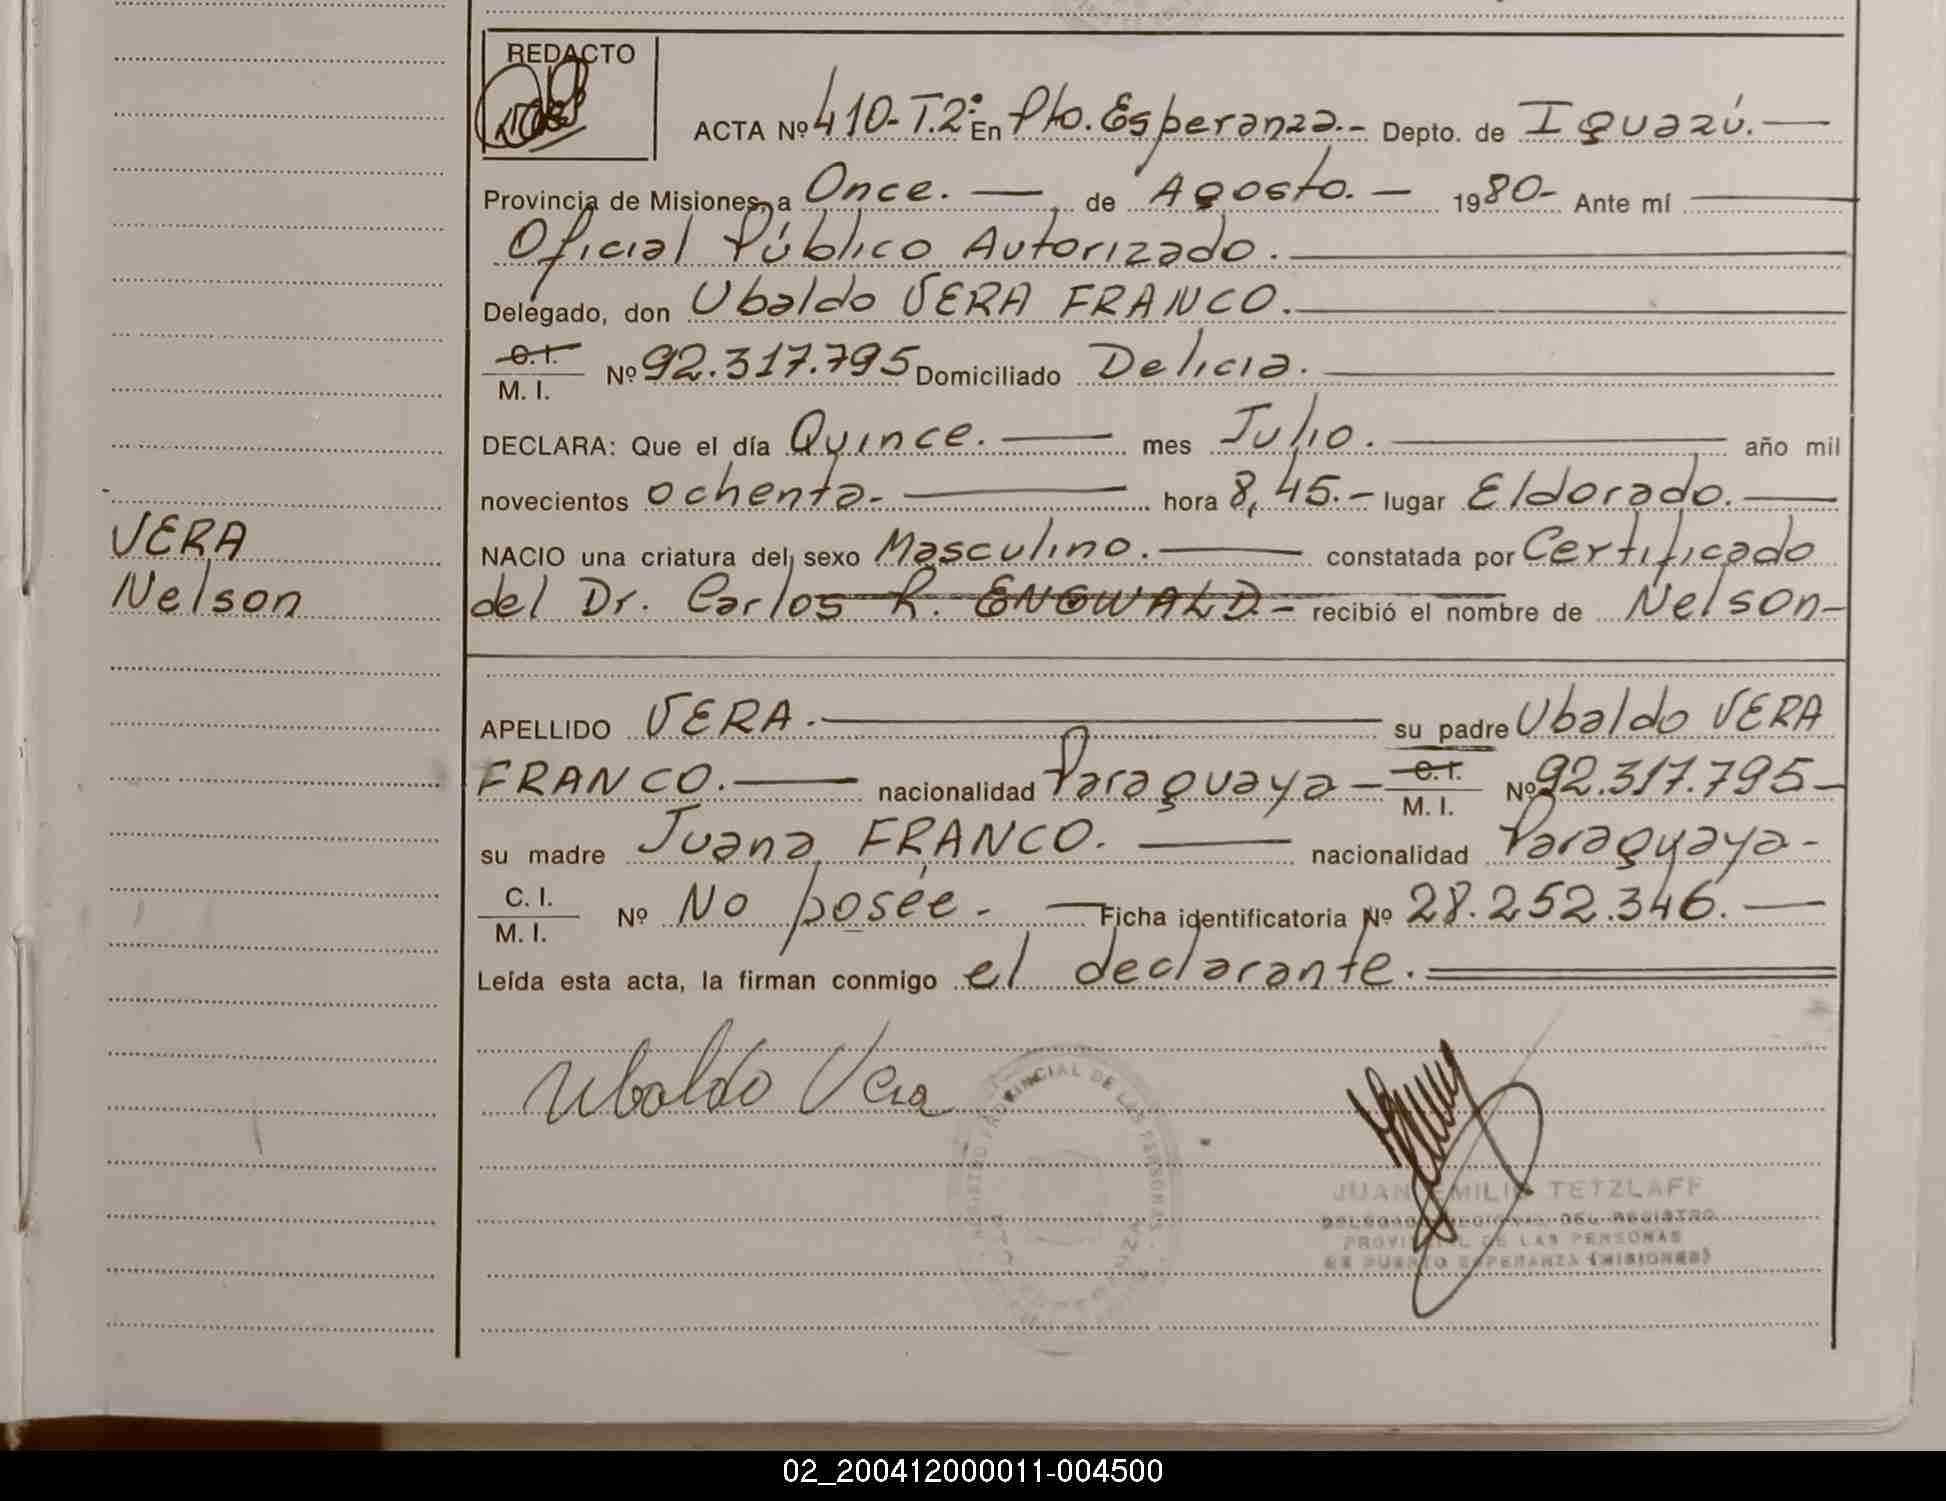 REDACTO
ACTA Nº 410-T.2º En Pto. Esperanza.- Depto. de Iguazú.
Provincia de Misiones, a Once. de Agosto. 1980- Ante mí
Oficial Público Autorizado.
Delegado, don Ubaldo VERA FRANCO.
C.I.
M. I. Nº 92.317.795 Domiciliado Delicia.
DECLARA: Que el día Quince. mes Julio. año mil
novecientos ochenta- hora 8,45.- lugar Eldorado.
VERA
NACIO una criatura del sexo Masculino. constatada por Certificado
Nelson
del Dr. Carlos R. ENGWALD.- recibió el nombre de Nelson-
APELLIDO VERA. su padre Ubaldo VERA
FRANCO. nacionalidad Paraguaya- C.I.
M. I. Nº 92.317.795-
su madre Juana FRANCO. nacionalidad Paraguaya-
C. I.
M. I. Nº No posée- Ficha identificatoria Nº 28.252.346.
Leída esta acta, la firman conmigo el declarante.
Ubaldo Vera
JUAN EMILIO TETZLAFF
DELEGADO REGIONAL DEL REGISTRO
PROVINCIAL DE LAS PERSONAS
DE PUERTO ESPERANZA (MISIONES)
REGISTRO PROVINCIAL DE LAS PERSONAS
02_200412000011-004500